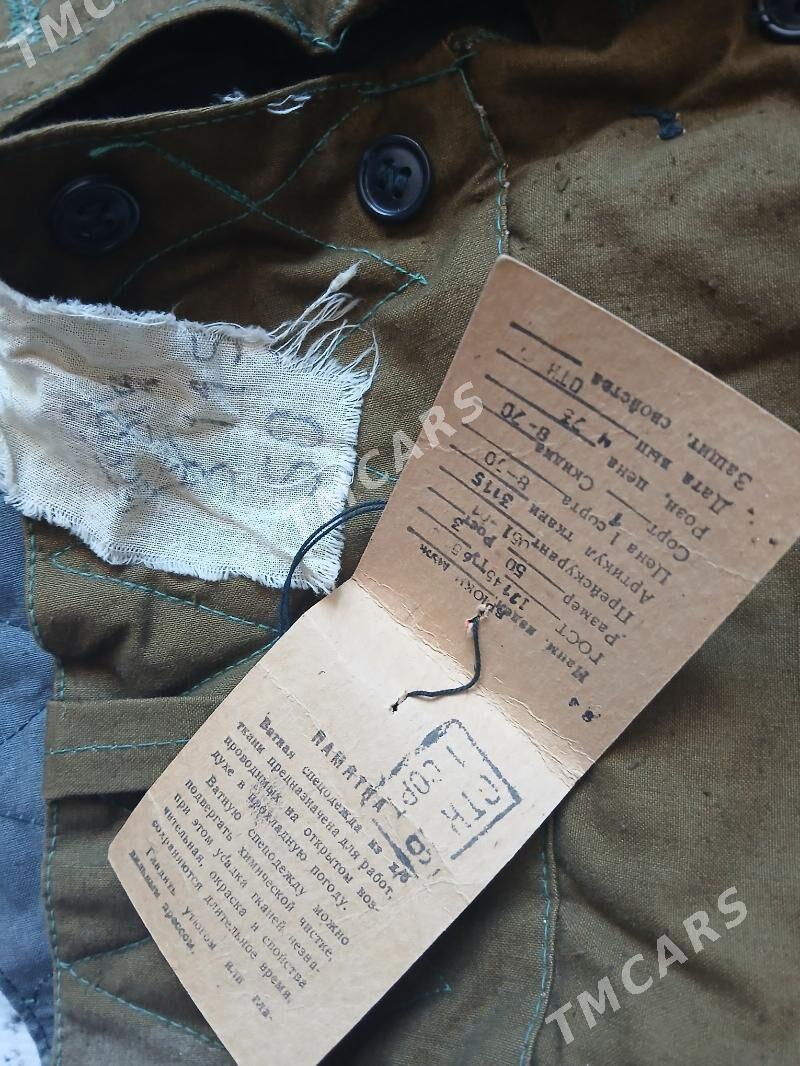 TMCARS
TMCARS
TMCARS
ПАМЯТКА
Ватная спецодежда из х/б
ткани предназначена для работ,
проводимых на открытом воз-
духе в прохладную погоду.
Ватную спецодежду можно
подвергать химической чистке,
при этом усадка тканей незна-
чительная, окраска и свойства
сохраняются длительное время.
Гладить утюгом или гла-
дильным прессом.
Наим. изделия БРЮКИ муж
ГОСТ
Размер 50 Рост 3
Прейскурант
Артикул ткани 3115
Цена 1 сорта 8-70
Сорт 1 Скидка
Розн. цена 8-70
Дата вып. 4
Защит. свойства